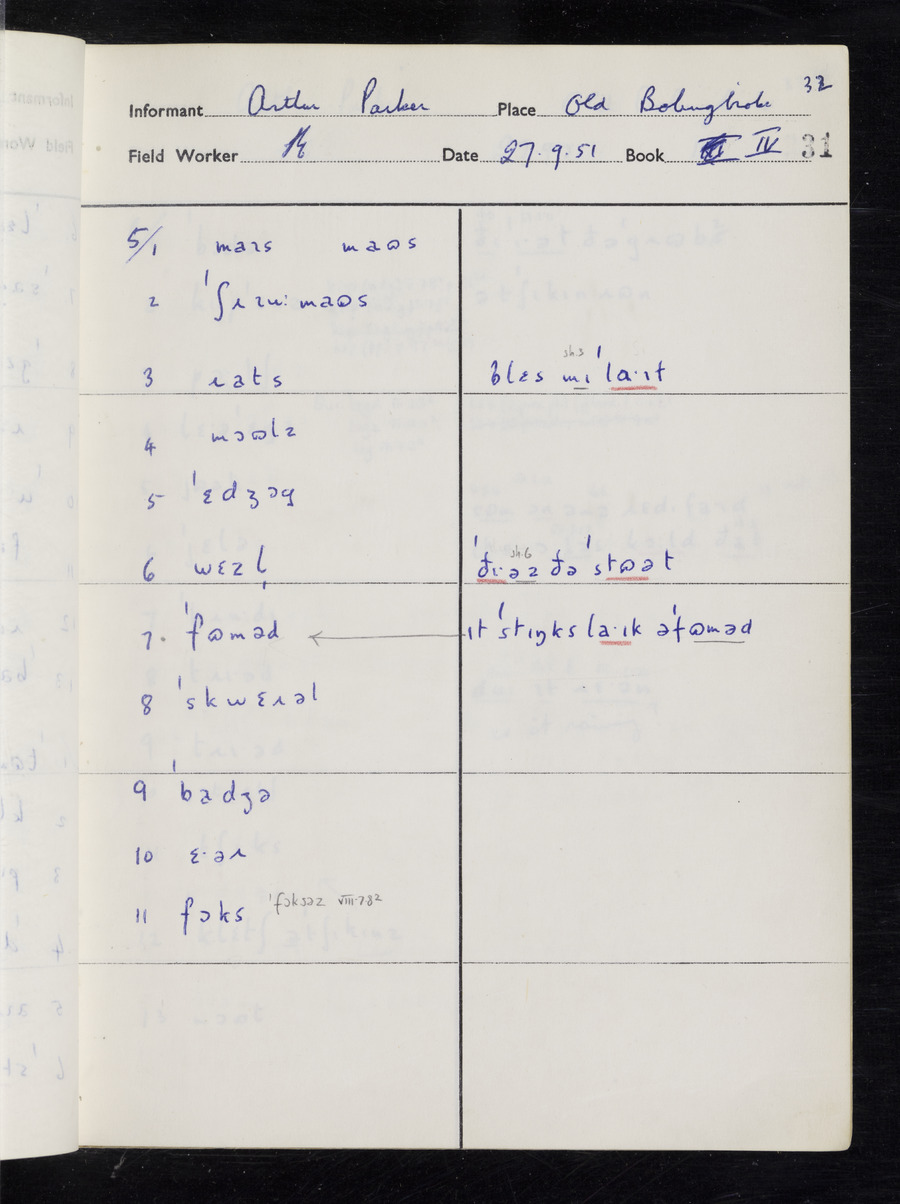 32
Informant Arthur Parker Place Old Bolingbroke
Field Worker Date 27.9.51 Book IV 31
5/1 maɪs maʊs
2 ˈʃɹɪuːmaʊs
3 ɹats blɛs mɪ ˈlaˑɪt
sh.3
4 mɔʊlz
5 ˈɛdʒəg
6 wɛzl̩ ˈðɪˑəz ðə ˈstʊət
sh.6
7. ˈfʊməd ɪt ˈstɪŋks laˑɪk əˈfʊməd
8 ˈskwɛɹəl
9 ˈbadʒə
10 ɛˑəɹ
11 fɔks ˈfɔksəz VIII.7.82